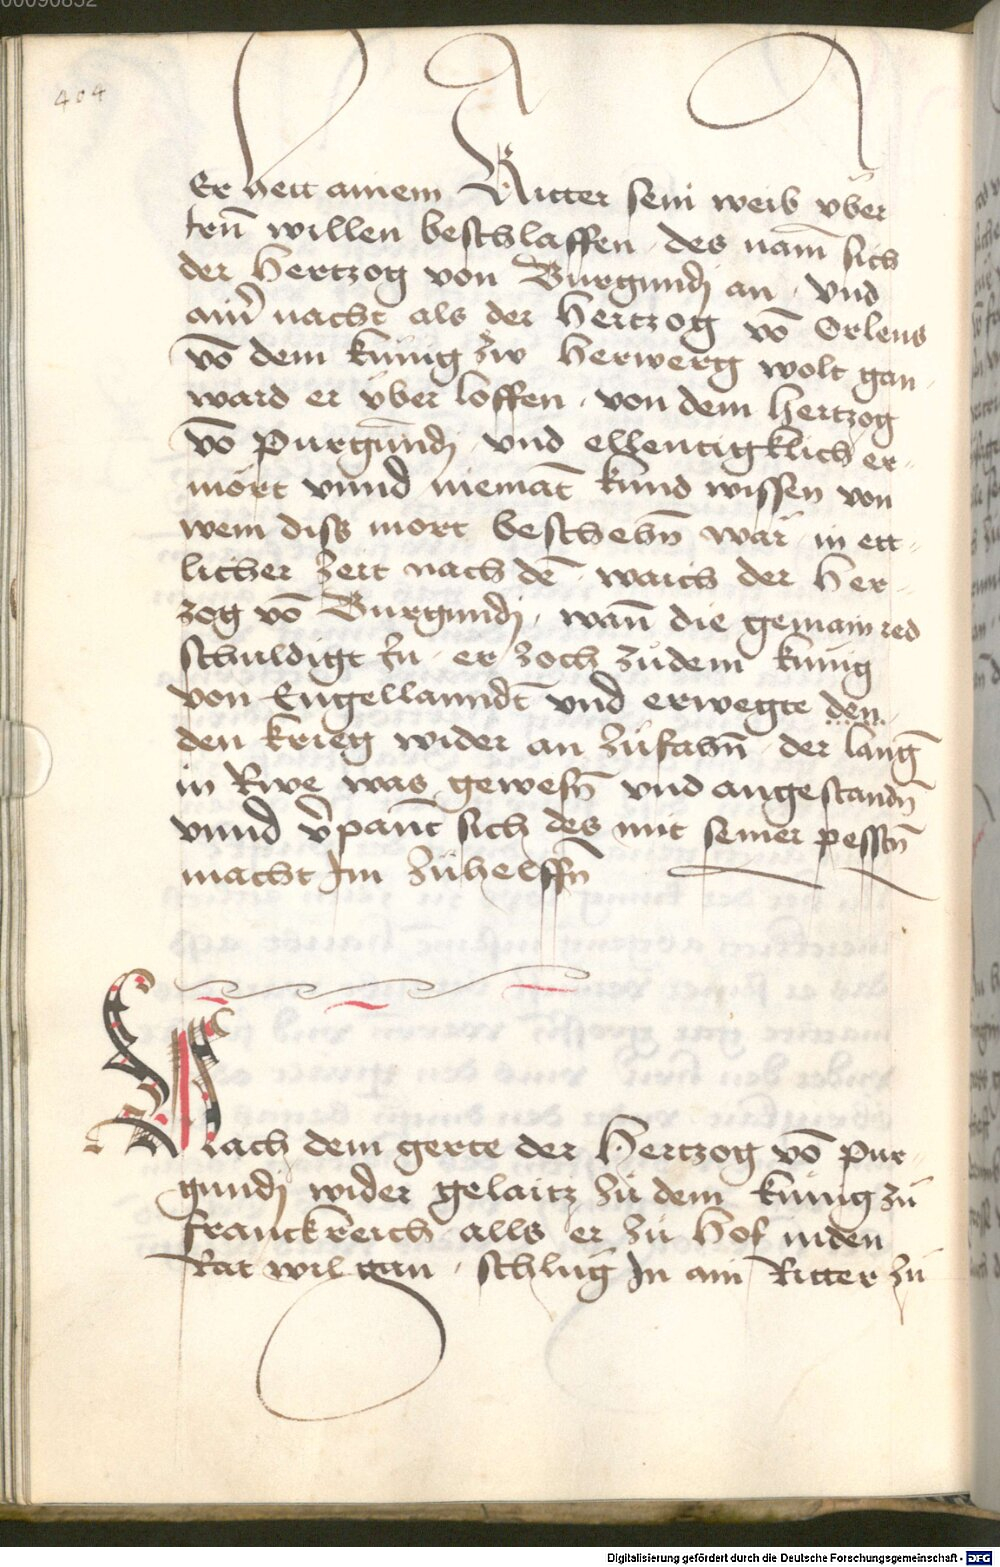 00090852
404
Er hett ainem Ritter sein weib v̈ber
irn̄ willen beschlaffen · des nam̄ sich
der Hertzog von Burgundj an · vnd
ainr̄ nacht als der Hertzog vō Orlens
vō dem kunig zw Herwerg wolt gan
ward er v̈ber loffen · von dem Hertzog
vō Purgundj vnd ellentigklich er-
mört vnnd niemāt kund wissen von
wem diss mort beschehn̄ war̄ · in ett-
licher Zeit nach dē · waich der Her-
zog vō Burgundj · wan̄ die gemain red
schuldigt In · er zoch zu dem kunig
von Engellanndt vnd erwegte den
den krieg wider an zufahn̄ · der lang
in Rwe was gewesn̄ vnd angestandn̄
vnnd v̄panīt sich des mit seiner pesstn̄
macht Im Zuhelffn̄
Nach dem gerte der Hertzog vō Pur-
gundj wider gelaitz zu dem kunig zu
franckreich alls er zu Hof inden
Rat wil gan · schlug In ain Ritter zu
Digitalisierung gefördert durch die Deutsche Forschungsgemeinschaft - DFG